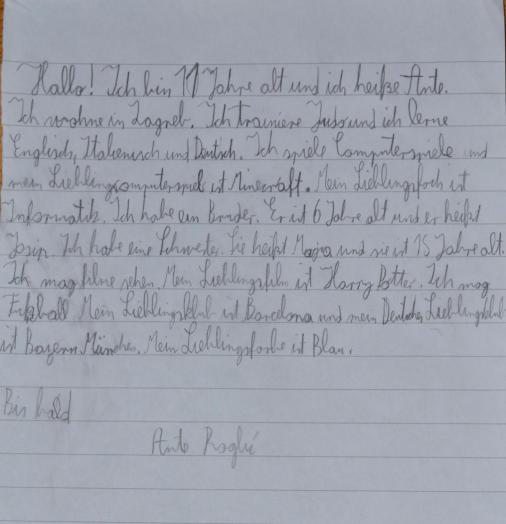 Hallo! Ich bin 11 Jahre alt und ich heiße Ante.
Ich wohne in Zagreb. Ich trainiere Judo und ich lerne
Englisch, Italienisch und Deutsch. Ich spiele Computerspiele und
mein Lieblingscomputerspiel ist Minecraft. Mein Lieblingsfach ist
Informatik. Ich habe ein Bruder. Er ist 6 Jahre alt und er heißt
Josip. Ich habe eine Schwester. Sie heißt und sie ist 15 Jahre alt.
Ich mag filme sehen. Mein Lieblingsfilm ist Harry Potter. Ich mag
Fußball. Mein Lieblingsklub ist Barcelona und mein Deutscher Lieblingsklub
ist Bayern München. Mein Lieblingsfarbe ist Blau.
Bis bald
Ante